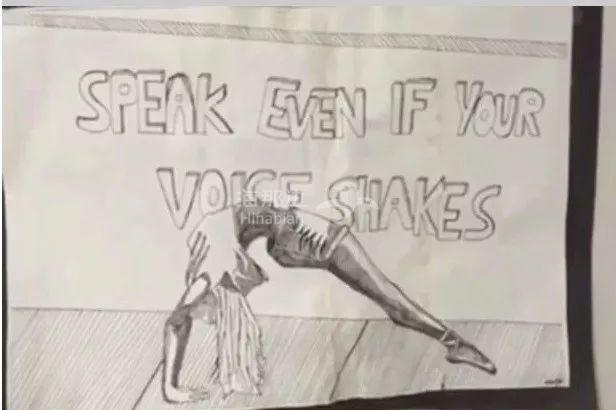 SPEAK EVEN IF YOUR
VOICE SHAKES
Hinabian